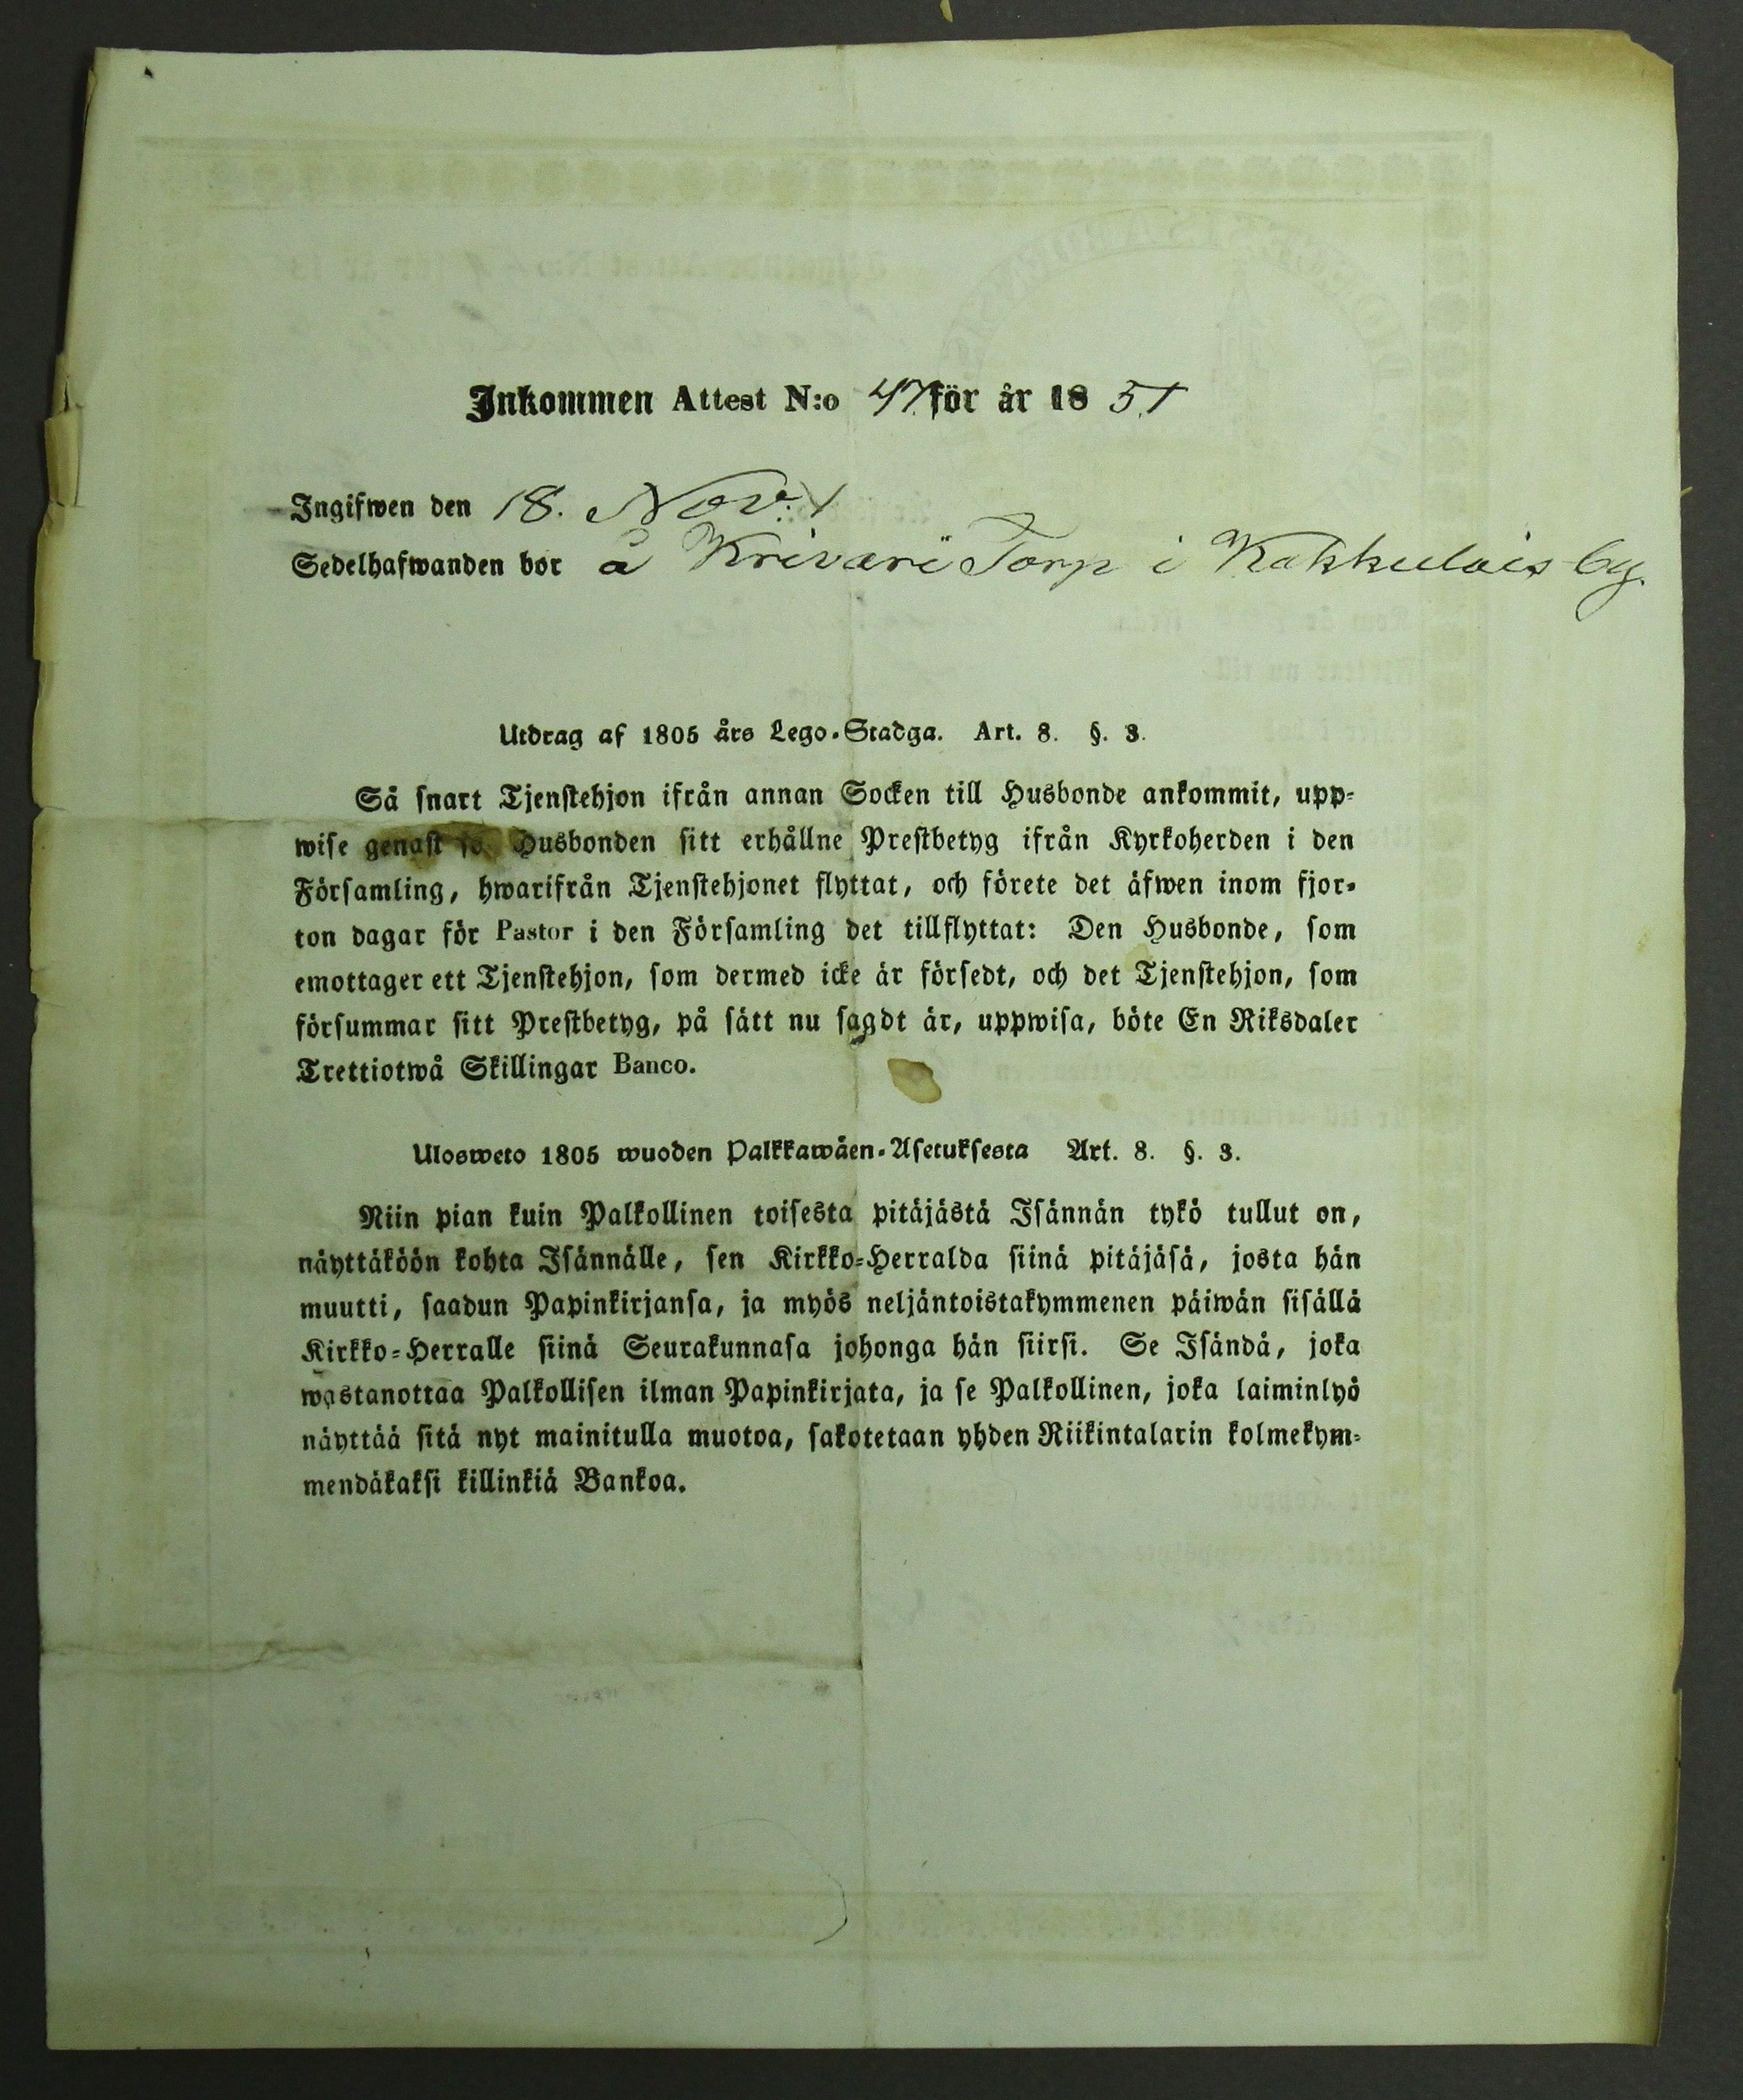 Inkommen Attest N:o 47 för år 1851
Ingifwen den 18. Nov.
Sedelhafwanden bor å Krivari Torp i Kakkulais by.
Utdrag af 1805 års Lego-Stadga. Art. 8. §. 3.
Så snart Tjenstehjon ifrån annan Socken till Husbonde ankommit, upp-
wise genast för Husbonden sitt erhållne Prestbetyg ifrån Kyrkoherden i den
Församling, hwarifrån Tjenstehjonet flyttat, och förete det äfwen inom fjor-
ton dagar för Pastor i den Församling det tillflyttat: Den Husbonde, som
emottager ett Tjenstehjon, som dermed icke är försedt, och det Tjenstehjon, som
försummar sitt Prestbetyg, på sätt nu sagdt är, uppwisa, böte En Riksdaler
Trettiotwå Skillingar Banco.
Ulosweto 1805 wuoden Palkkawäen-Asetuksesta Art. 8. §. 3.
Niin pian kuin Palkollinen toisesta pitäjästä Isännän tykö tullut on,
näyttäköön kohta Isännälle, sen Kirkko-Herralda siinä pitäjäsä, josta hän
muutti, saadun Papinkirjansa, ja myös neljäntoistakymmenen päiwän sisällä
Kirkko-Herralle siinä Seurakunnasa johonga hän siirsi. Se Isändä, joka
wastanottaa Palkollisen ilman Papinkirjata, ja se Palkollinen, joka laiminlyö
näyttää sitä nyt mainitulla muotoa, sakotetaan yhden Riikintalarin kolmekym-
mendäkaksi killinkiä Bankoa.